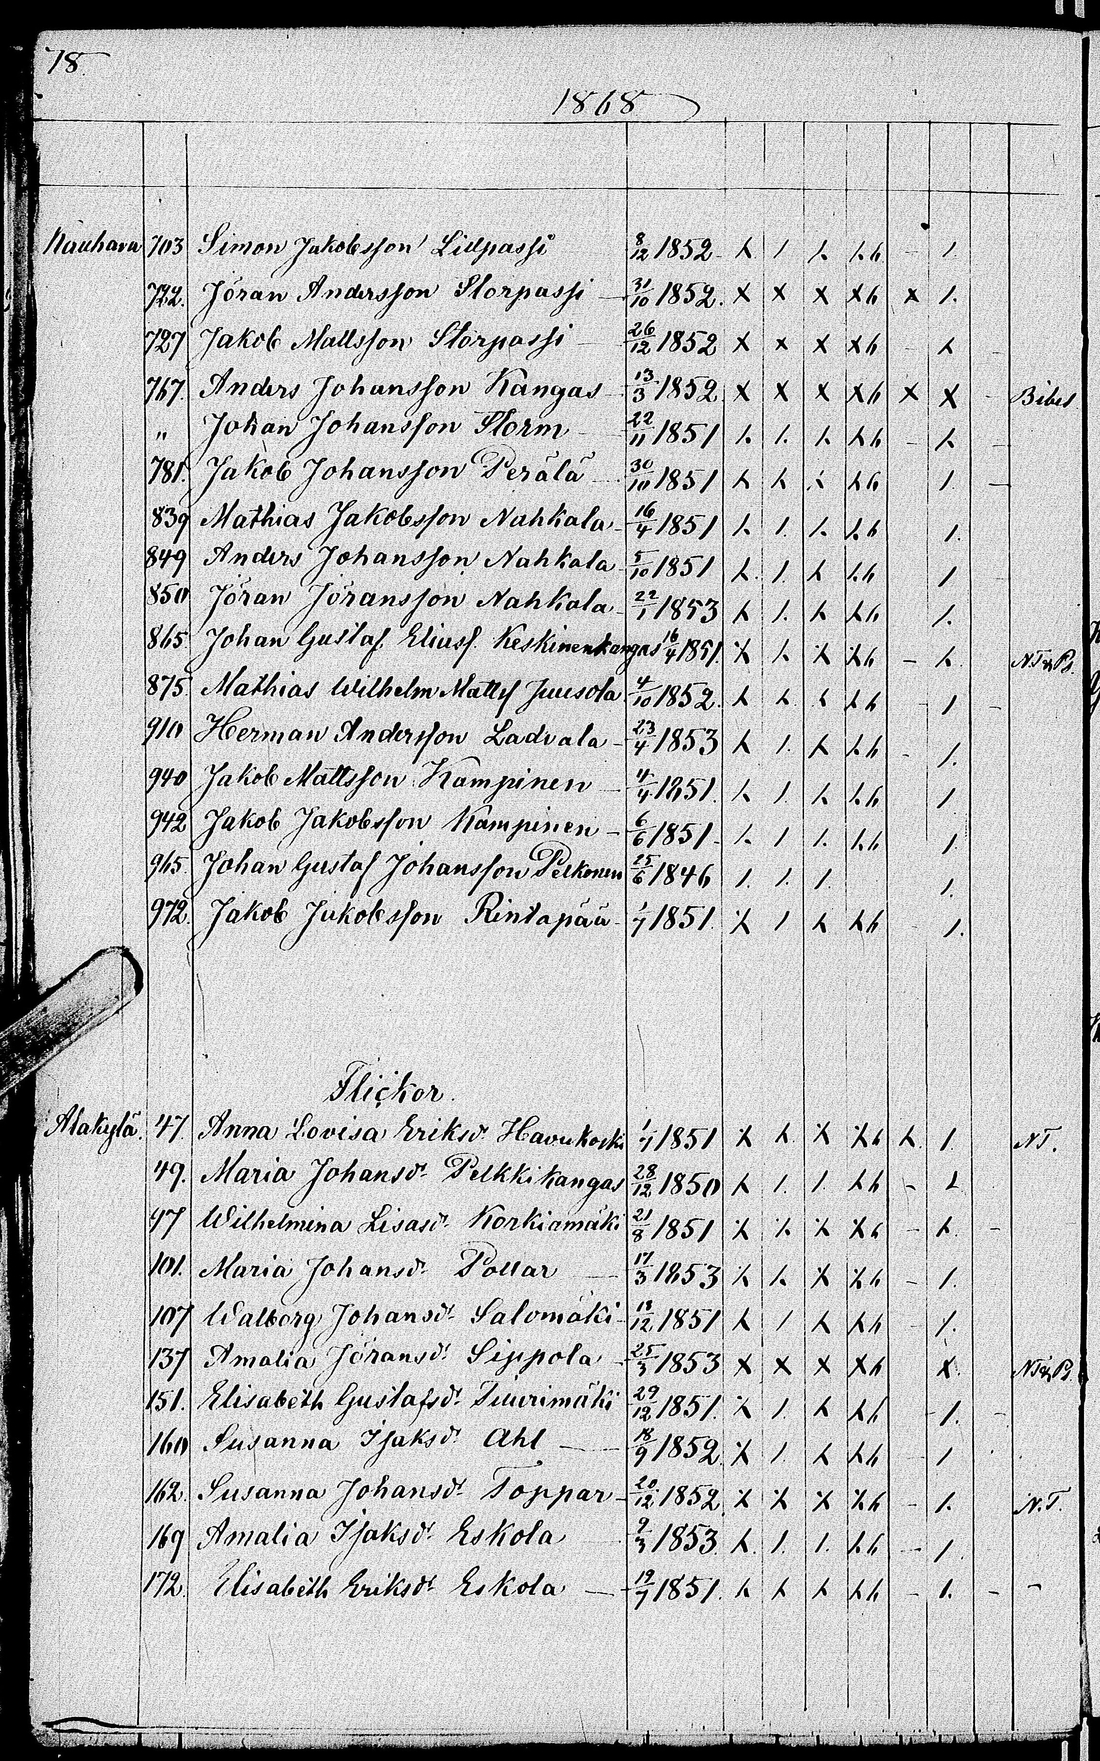 78
1868
Kauhava 703 Simon Jakobsson Lillpassi 8/12 1852
722. Jöran Andersson Storpassi 31/10 1852. x x x xb x
727 Jakob Mattsson Storpassi 26/12 1852 x x x xb
767. Anders Johansson Kangas 13/3 1852 x x x xb x x Bibel
„ Johan Johansson Storm 22/11 1851
781. Jakob Johansson Perälä 30/10 1851
839 Mathias Jakobsson Nahkala 16/4 1851
849 Anders Johansson Nahkala 5/10 1851
850 Jöran Jöransson Nahkala 22/1 1853
865. Johan Gustaf Eliass. Keskinenkangas 16/4 1851. N.T. & Ps.
875. Mathias Wilhelm Matts Juusola 4/10 1852
910 Herman Andersson Ladvala 23/4 1853
940 Jakob Mattsson Kampinen 4/4 1851
942 Jakob Jakobsson Kampinen 6/6 1851
965. Johan Gustaf Johansson Pelkonen 25/6 1846
972. Jakob Jakobsson Rintapää 1/7 1851.
Flickor.
Alakylä. 47. Anna Lovisa Eriksdr Havukoski 1/7 1851 N.T.
49. Maria Johansdr Pelkkikangas 28/12 1850
97 Wilhelmina Lisasdr Korkiamäki 21/8 1851
101. Maria Johansdr Pollar 17/3 1853
107 Walborg Johansdr Salomäki 13/12 1851
137 Amalia Jöransdr Sippola 25/3 1853 x x x xb x N.T. & Ps.
151. Elisabeth Gustafsdr Tuurimäki 29/12 1851.
160 Susanna Isaksdr Ahl 18/9 1852
162. Susanna Johansdr Toppar 20/12 1852. N.T.
169 Amalia Isaksdr Eskola 9/3 1853.
172. Elisabeth Eriksdr Eskola 19/7 1851.